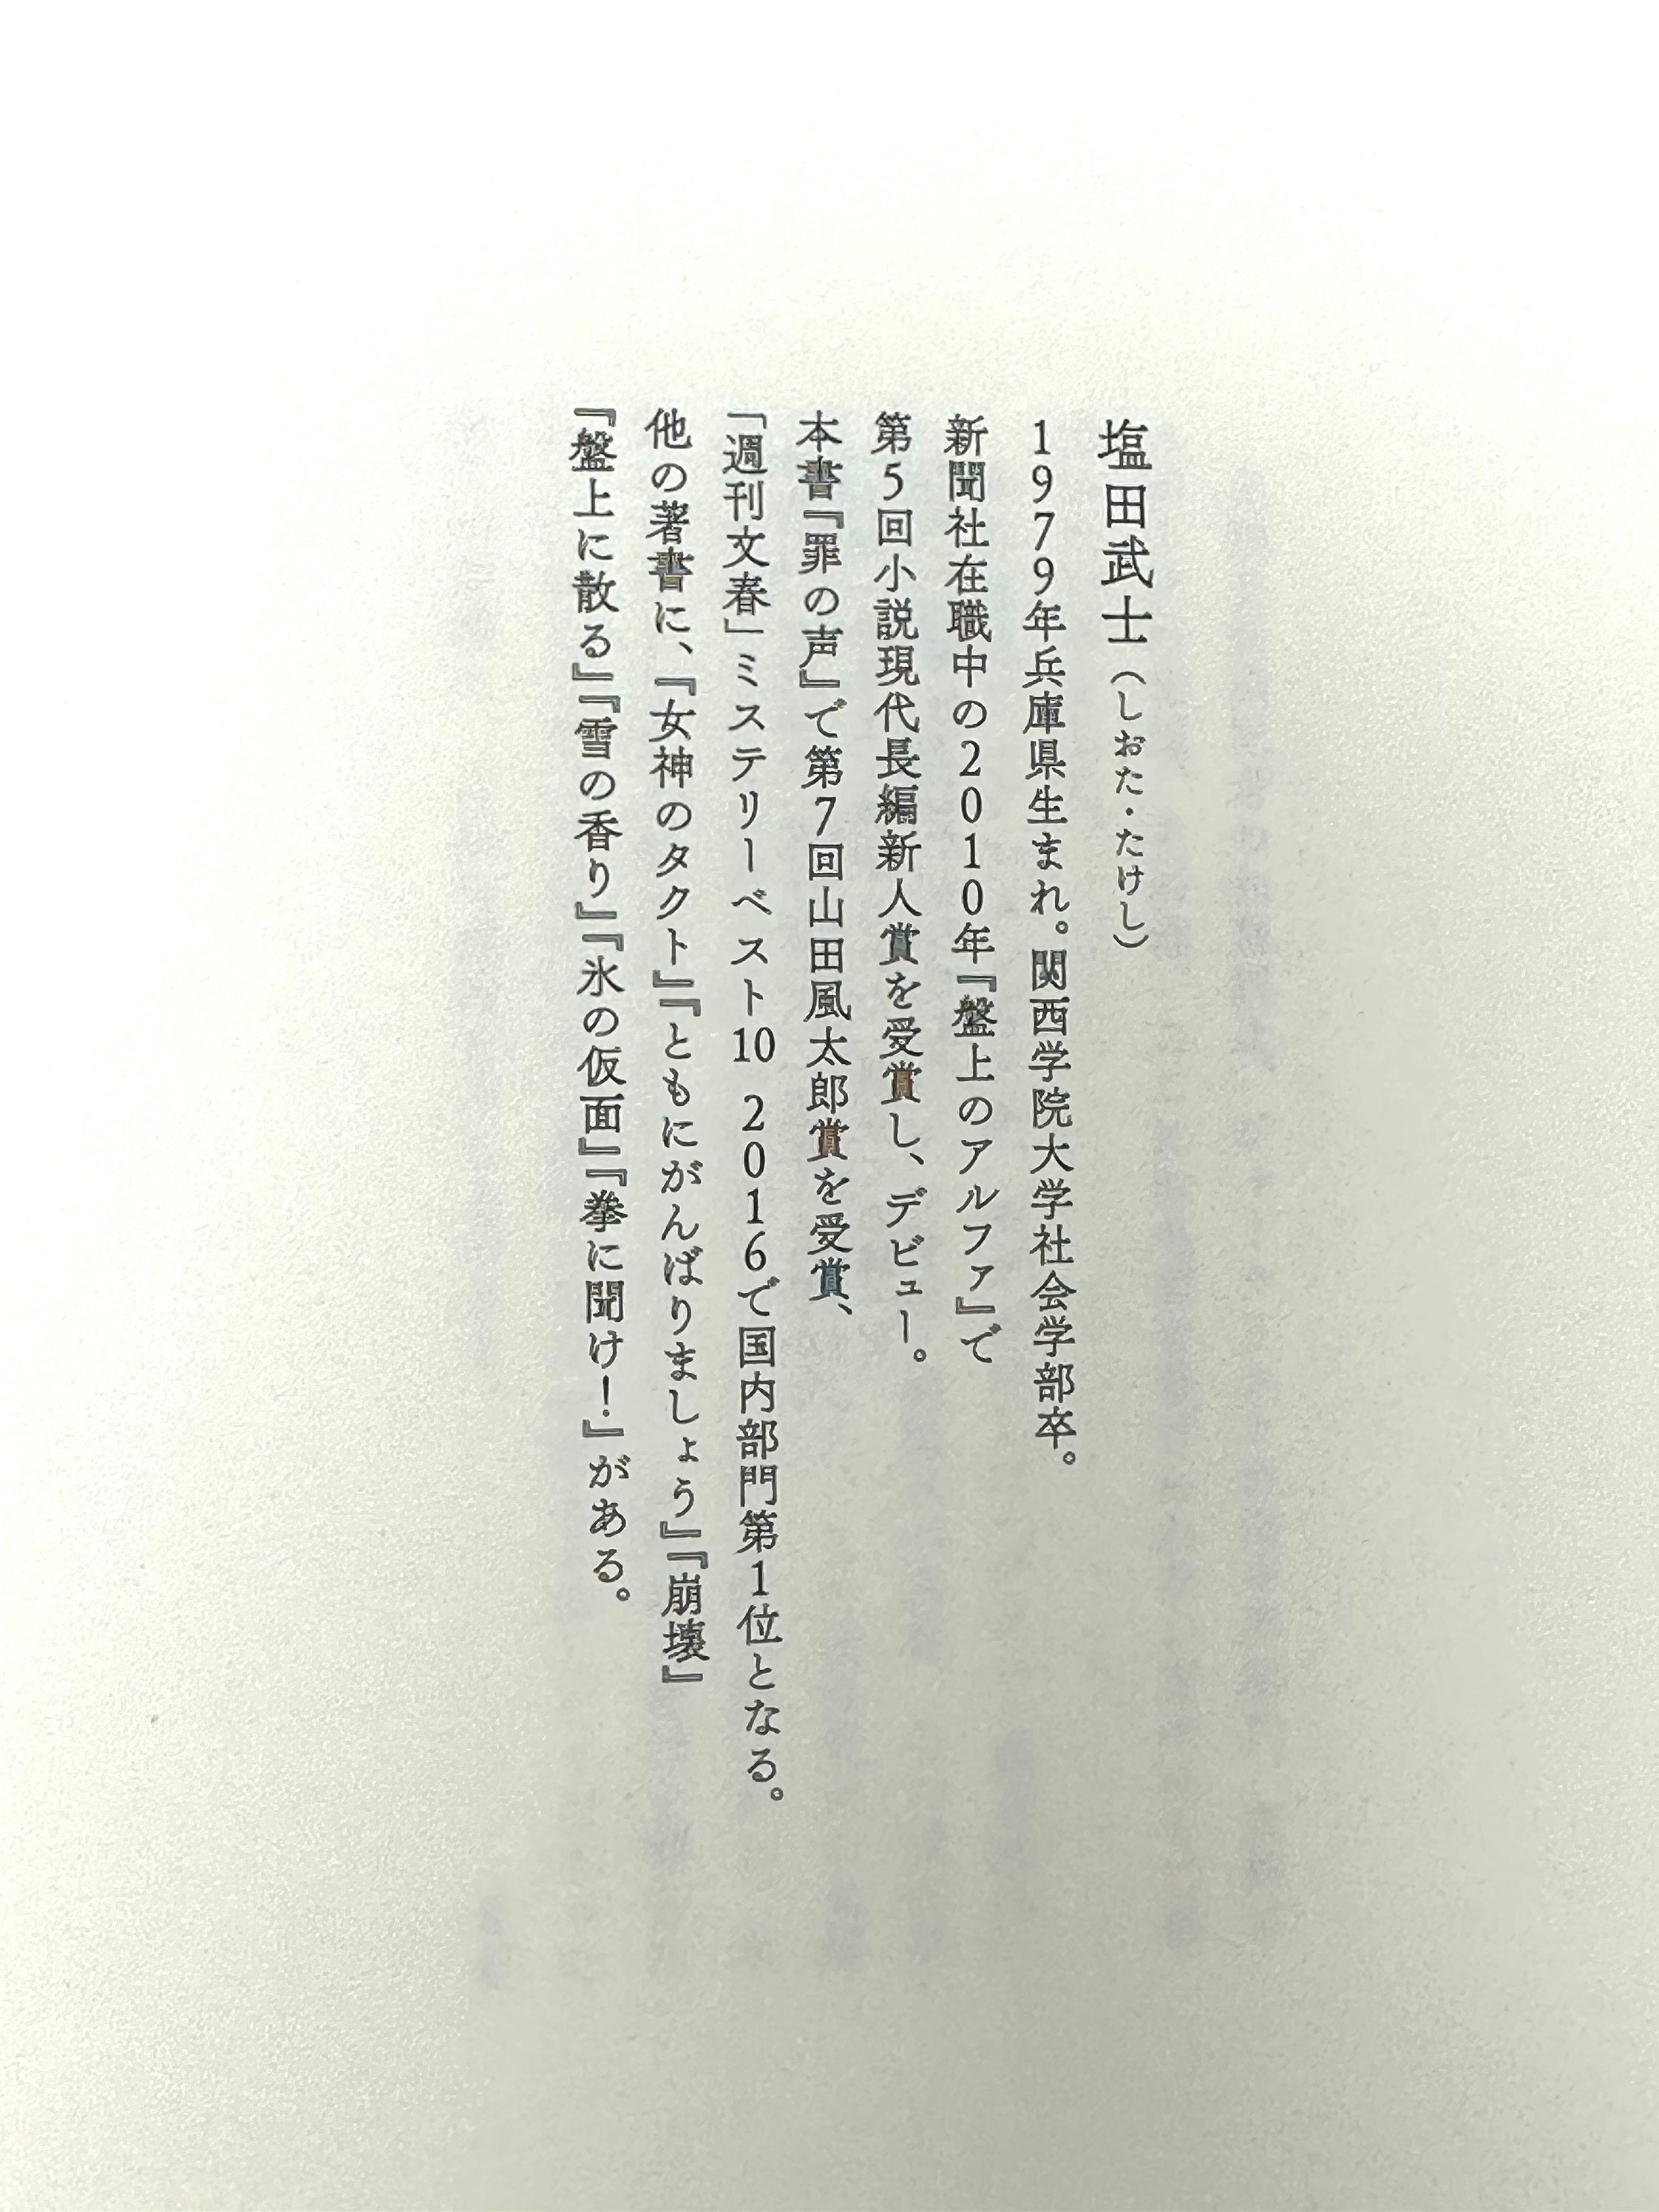 塩田武士（しおた・たけし）
1979年兵庫県生まれ。関西学院大学社会学部卒。
新聞社在職中の2010年『盤上のアルファ』で
第5回小説現代長編新人賞を受賞し、デビュー。
本書『罪の声』で第7回山田風太郎賞を受賞、
「週刊文春」ミステリーベスト10 2016で国内部門第1位となる。
他の著書に、『女神のタクト』『ともにがんばりましょう』『崩壊』
『盤上に散る』『雪の香り』『氷の仮面』『拳に聞け！』がある。